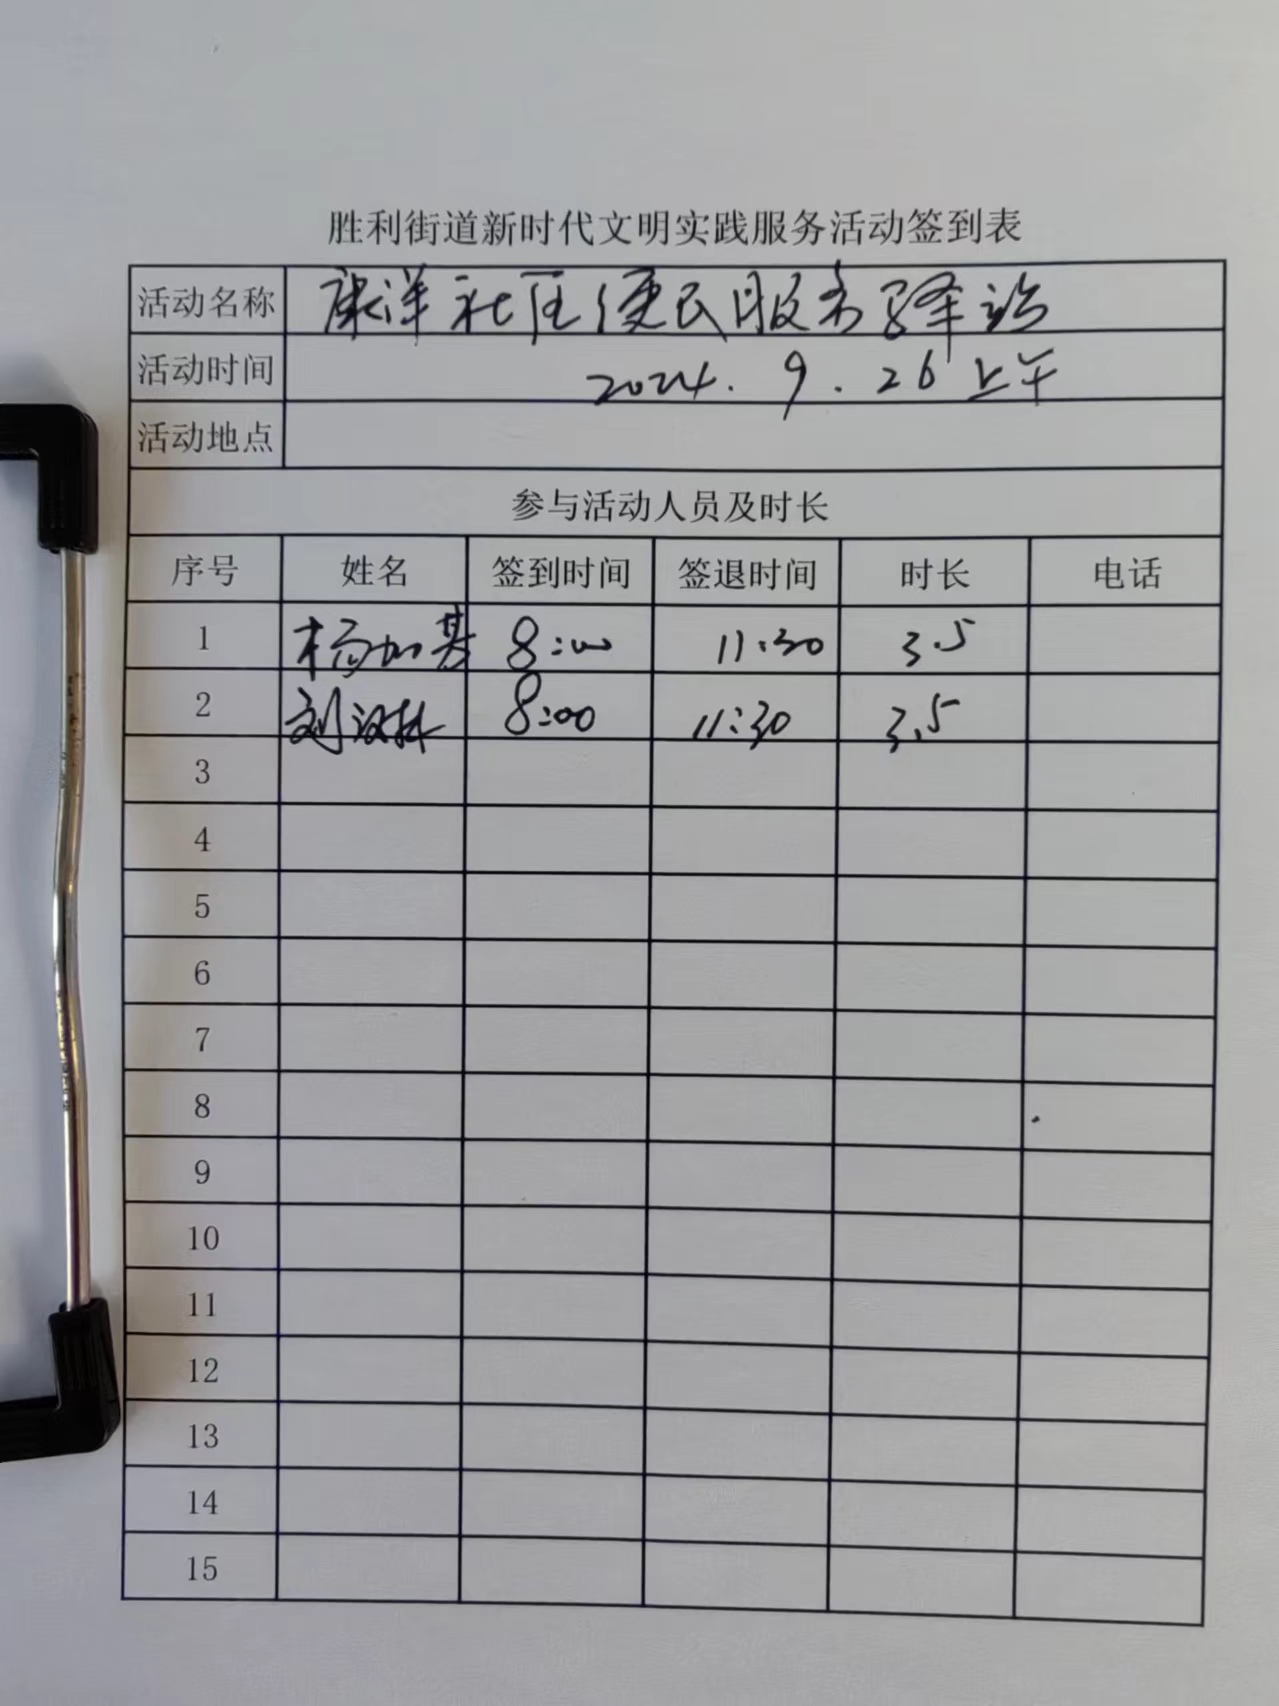 胜利街道新时代文明实践服务活动签到表
活动名称 康洋社区便民服务驿站
活动时间 2024.9.26上午
活动地点
参与活动人员及时长
序号 姓名 签到时间 签退时间 时长 电话
1 杨加基 8:00 11:30 3.5
2 刘汉林 8:00 11:30 3.5
3
4
5
6
7
8
9
10
11
12
13
14
15